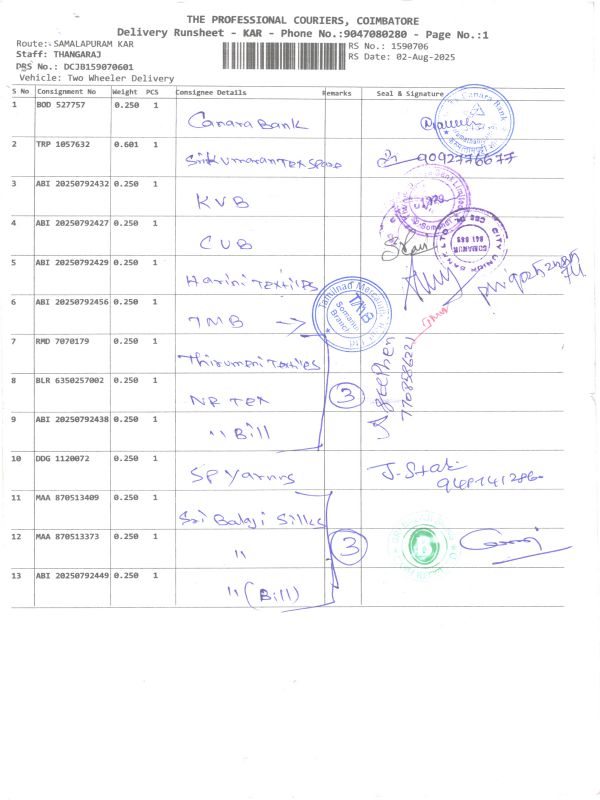 THE PROFESSIONAL COURIERS, COIMBATORE
Delivery Runsheet - KAR - Phone No.:9047080280 - Page No.:1
Route:- SAMALAPURAM KAR
RS No.: 1590706
Staff: THANGARAJ
RS Date: 02-Aug-2025
DRS No.: DCJB159070601
Vehicle: Two Wheeler Delivery
S No Consignment No Weight PCS Consignee Details Remarks Seal & Signature
1 BOD 527757 0.250 1 Canara Bank
2 TRP 1057632 0.601 1 Srikumaran Tex 9092776677
3 ABI 20250792432 0.250 1 KVB
4 ABI 20250792427 0.250 1 CUB
5 ABI 20250792429 0.250 1 Harini Textiles
6 ABI 20250792456 0.250 1 TMB
7 RMD 7070179 0.250 1 Thirumeni Textiles
8 BLR 6350257002 0.250 1 NR Tex 3
9 ABI 20250792438 0.250 1 " Bill
10 DDG 1120072 0.250 1 SP Yarns
11 MAA 870513409 0.250 1 Sri Balaji Silks
12 MAA 870513373 0.250 1 " 3
13 ABI 20250792449 0.250 1 " (Bill)